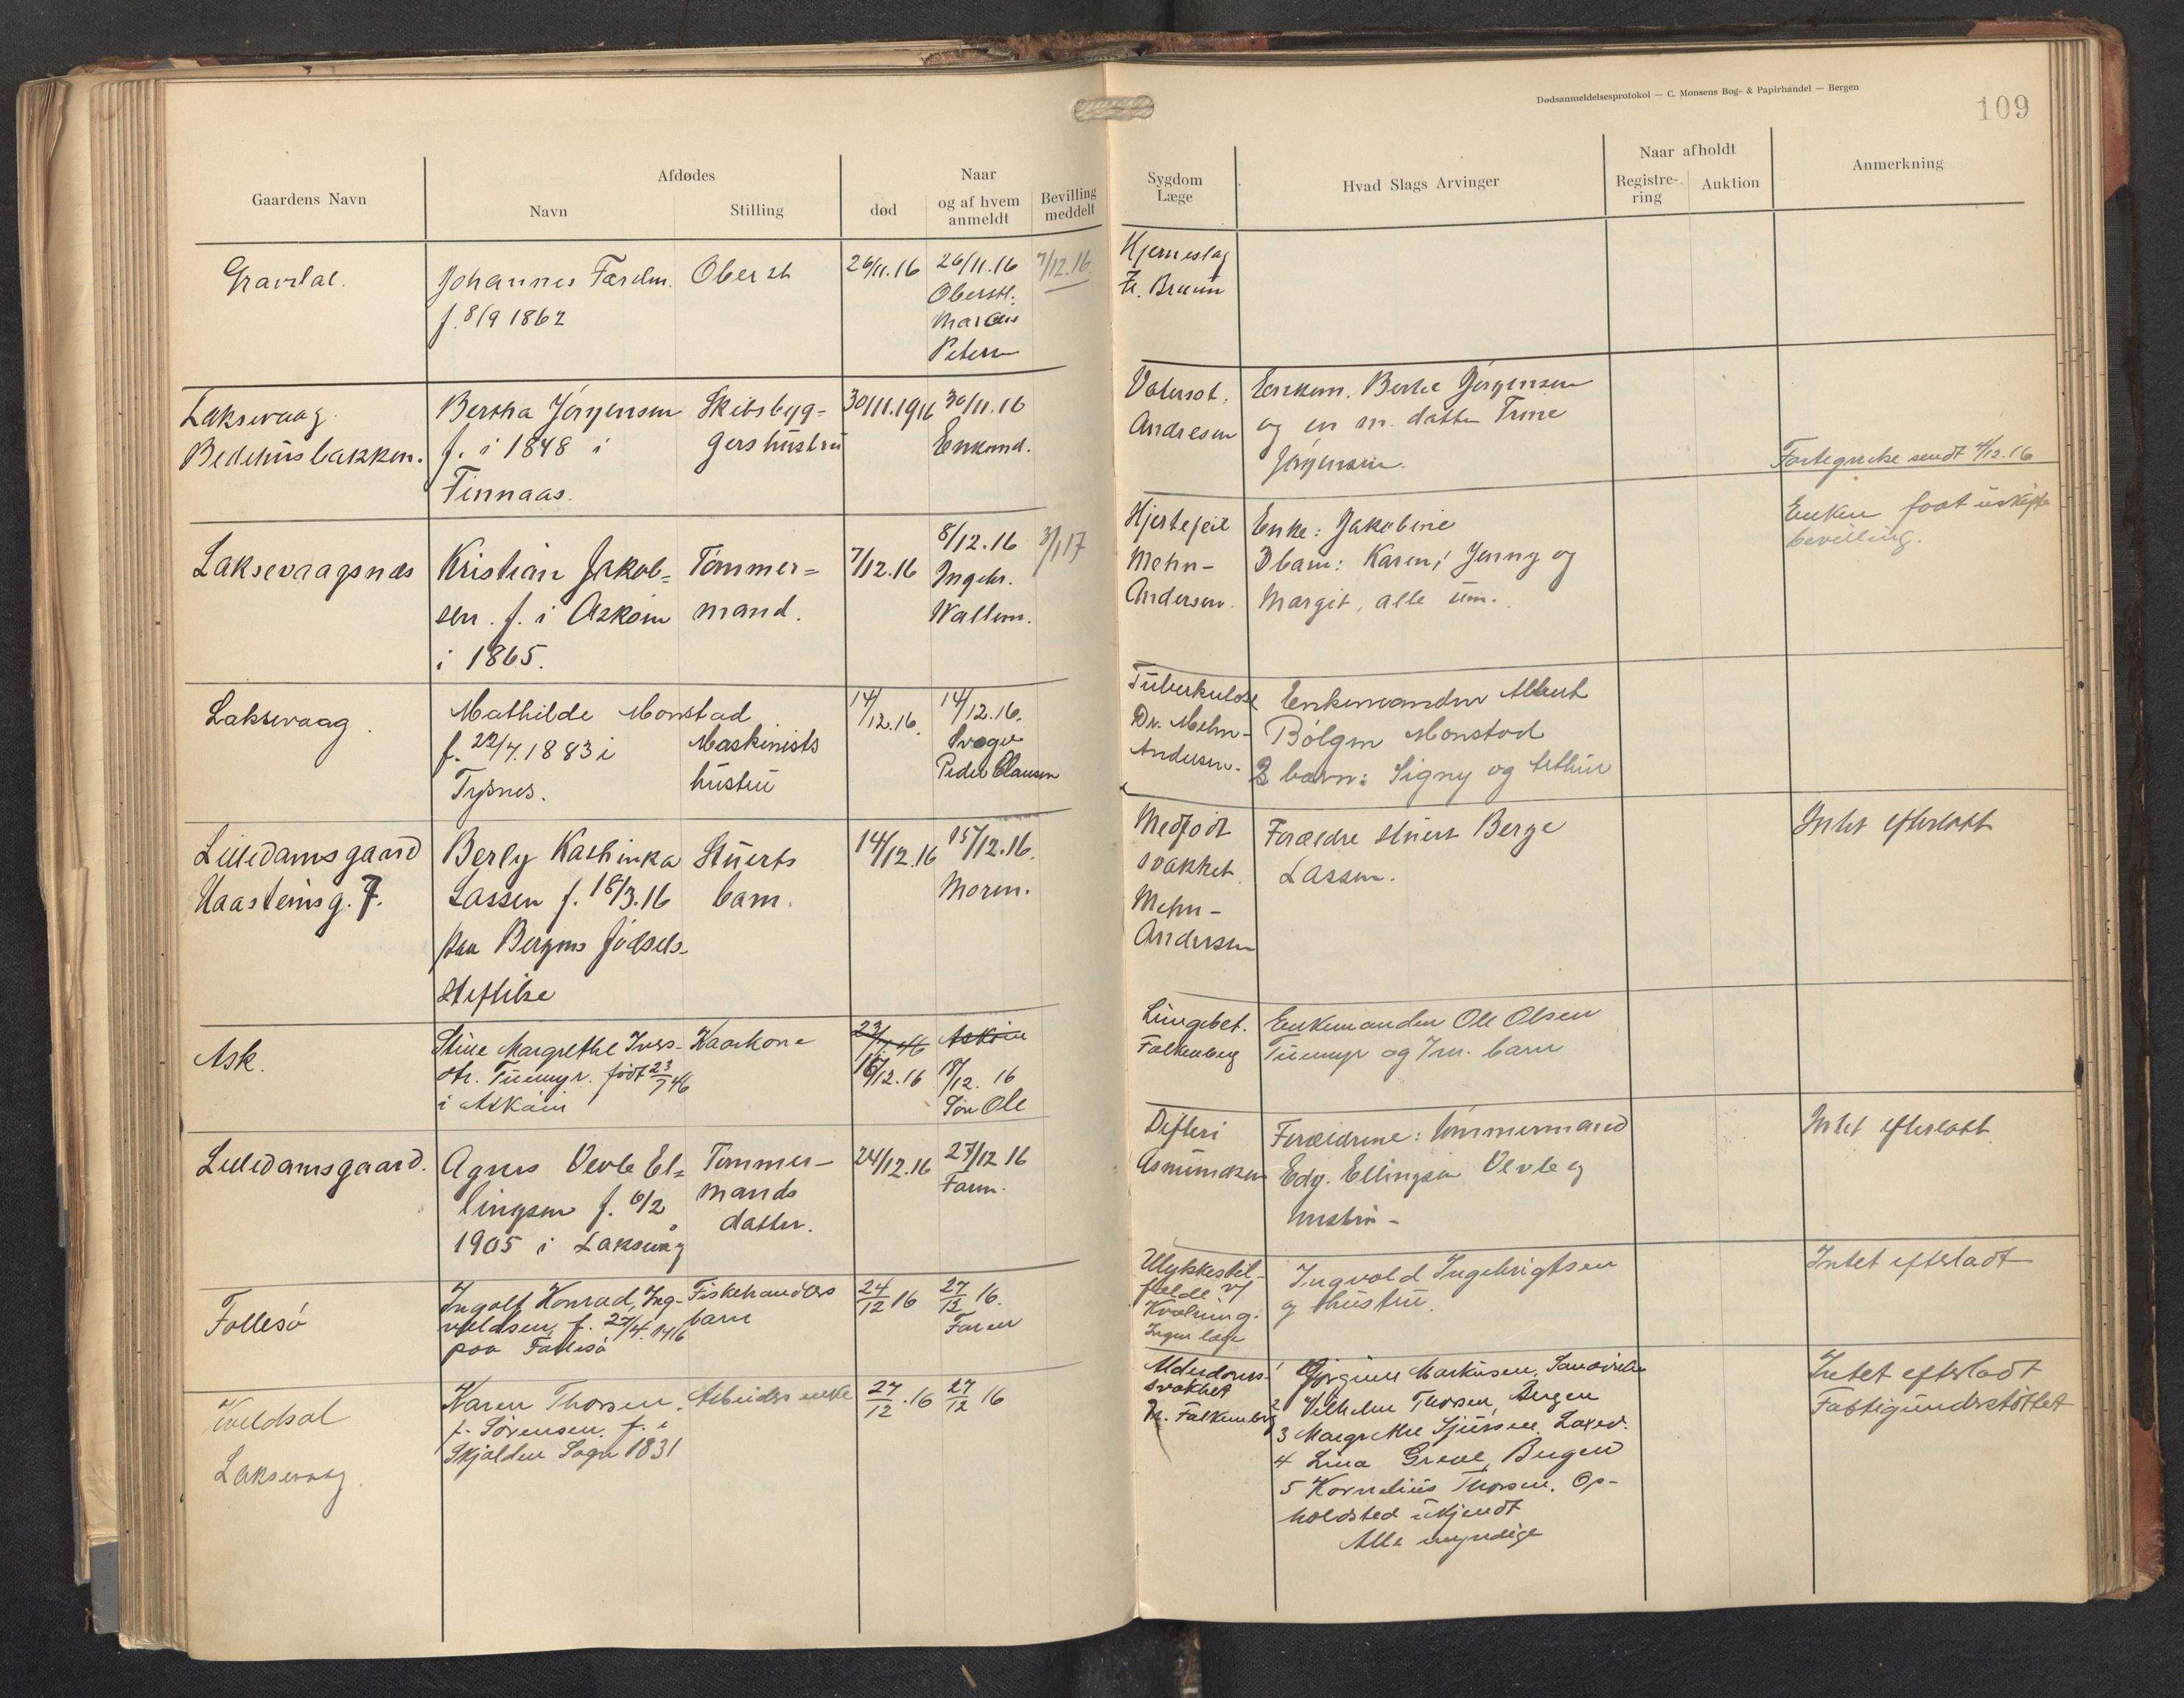 Dødsanmeldelsesprotokol — C. Monsens Bog- & Papirhandel — Bergen
109
Gaardens Navn
Afdødes
Navn
Stilling
død
Naar
og af hvem
anmeldt
Bevilling
meddelt
Sygdom
Læge
Hvad Slags Arvinger
Naar afholdt
Registre-
ring
Auktion
Anmerkning
Gravdal.
Johannes
f. 8/9 1862
Oberst
26/11.16
26/11.16
Oberstl.
Marcus
Petersen
7/12.16.
Hjerneslag
Fr. Bruun
Laksevaag
Bedehusbakken.
Bertha Jörgensen
f. i 1848 i
Finnaas.
Skibsbyg=
gers hustru
30/11.1916
30/11.16
Enkemd.
Vatersot.
Andresen
Enkem. Jørgensen
og en m. datter Trine
Jörgensen.
Fortegnelse sendt 4/12.16
Laksevaagsnæs
Kristian Jakob=
sen. f. i Askøen
i 1865.
Tømmer=
mand.
7/12.16
8/12.16
Ingebr.
Wallem.
3/1 17
Hjertefeil
Mehn-
Andersen.
Enke: Jakobine
3 barn: Karen, Jenny og
Margit, alle um.
Enken faat uskifte
bevilling.
Laksevaag
Mathilde Monstad
f. 22/7.1883 i
Tysnes.
Maskinists
hustru
14/12.16.
14/12.16.
Svoger
Peder Clausen
Tuberkulose
Dr. Mehn-
Andersen.
Enkemanden Albert
Bölgen Monstad
2 barn: Signy og Arthur
Lilledamsgaard
Haasteinsg. 7.
Berly Kathinka
Lassen f. 18/3.16
paa Bergens födsels-
stiftelse
Stuerts
barn.
14/12.16
15/12.16.
Moren.
Medfödt
svakhet
Mehn-
Andersen
Forældre stuert Berge
Lassen.
Intet efterlatt
Ask.
Stine Margrethe Ivers-
dtr. Tuemyr. født 23/7 46
i Askøen
Kaarkone
23/7 46
16/12.16
Askøen
18/12. 16
Søn Ole
Lungebet.
Falkenberg
Enkemanden Ole Olsen
Tuemyr og 7 m. barn
Lilledamsgaard.
Agnes Vevle El=
lingsen f. 6/2
1905 i Laksevåg
Tømmer-
mands
datter.
24/12.16
27/12 16
Faren.
Difteri
Asmundsen
Forældrene: tømmermand
Edv. Ellingsen Vevle og
hustru -
Intet efterlatt
Follesö
Ingolf Konrad Ing-
valdsen, f. 27/4.1916
paa Follesö
Fiskehandlers
barn
24/12 16
27/12 16.
Faren
Ulykkestil-
fælde v/
Kvælning.
Ingen læge
Ingvald Ingebrigtsen
og hustru.
Intet efterladt
Laksevaag
Karen Thorsen.
f. Sørensen. f. i
Skjolden Sogn 1831
Arbeiders enke
27/12.16
27/12 16
Alderdoms-
svakhet
Dr. Falkenberg
1 Jørgine Markusen, Sandviken
2 Vilhelm Thorsen, Bergen
3 Margrethe Sjursen. Laxev.
4 Lina Greve, Bergen
5 Kornelius Thorsen. Op-
holdsted ukjendt
Alle myndige
Intet efterladt
Fattigunderstöttet